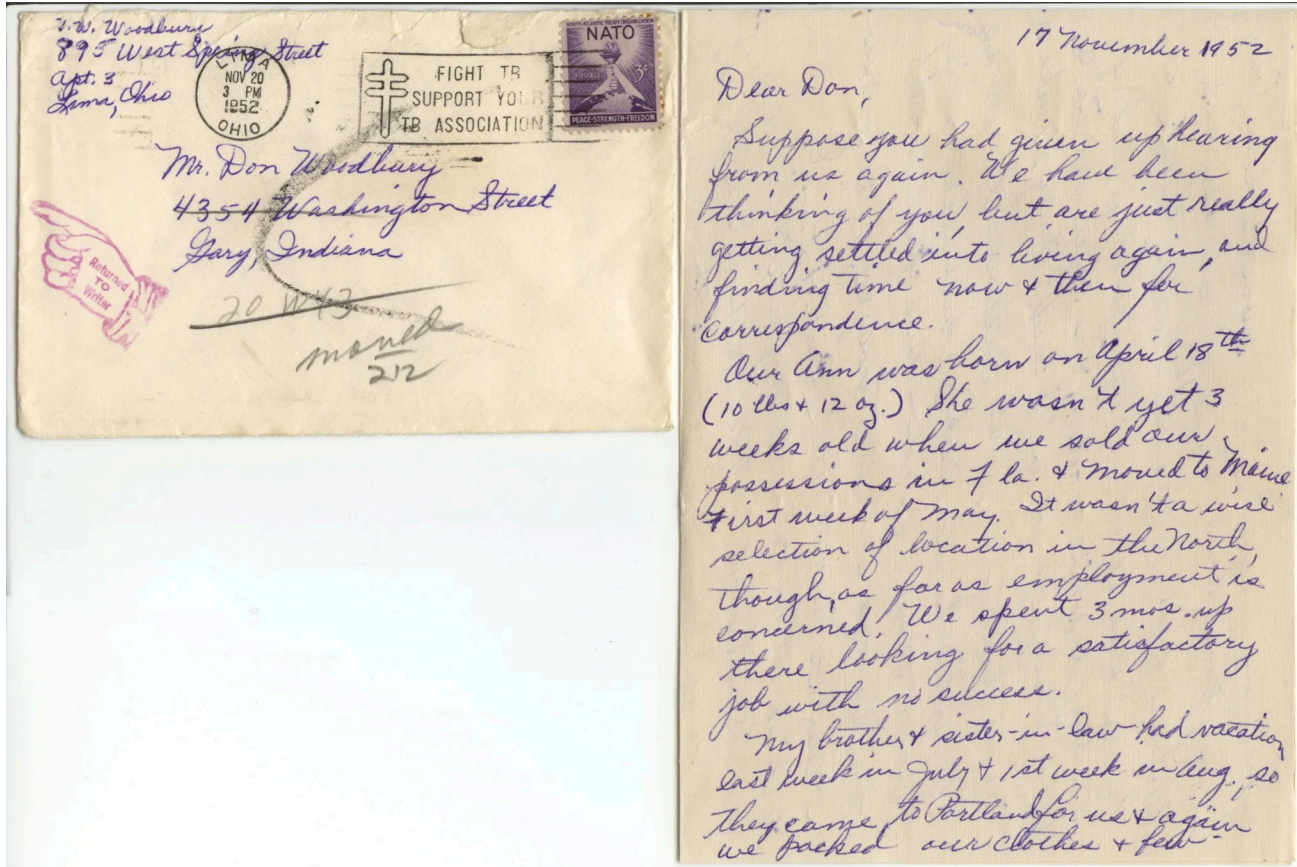 V. W. Woodbury
895 West Spring Street
Apt. 3
Lima, Ohio
LIMA
NOV 20
3 PM
1952
OHIO
FIGHT TB
SUPPORT YOUR
TB ASSOCIATION
NORTH ATLANTIC TREATY ORGANIZATION
NATO
POSTAGE 3¢
PEACE-STRENGTH-FREEDOM
Mr. Don Woodbury
4354 Washington Street
Gary, Indiana
Returned
TO
Writer
20 W 43
moved
212
17 November 1952
Dear Don,
Suppose you had given up hearing
from us again. We have been
thinking of you, but are just really
getting settled into living again, and
finding time now & then for
correspondence.
Our Ann was born on April 18th
(10 lbs & 12 oz.) She wasn't yet 3
weeks old when we sold our
possessions in Fla. & moved to Maine
first week of May. It wasn't a wise
selection of location in the North,
though, as far as employment is
concerned. We spent 3 mos. up
there looking for a satisfactory
job with no success.
My brother & sister-in-law had vacation
last week in July & 1st week in Aug., so
they came to Portland for us & again
we packed our clothes & few